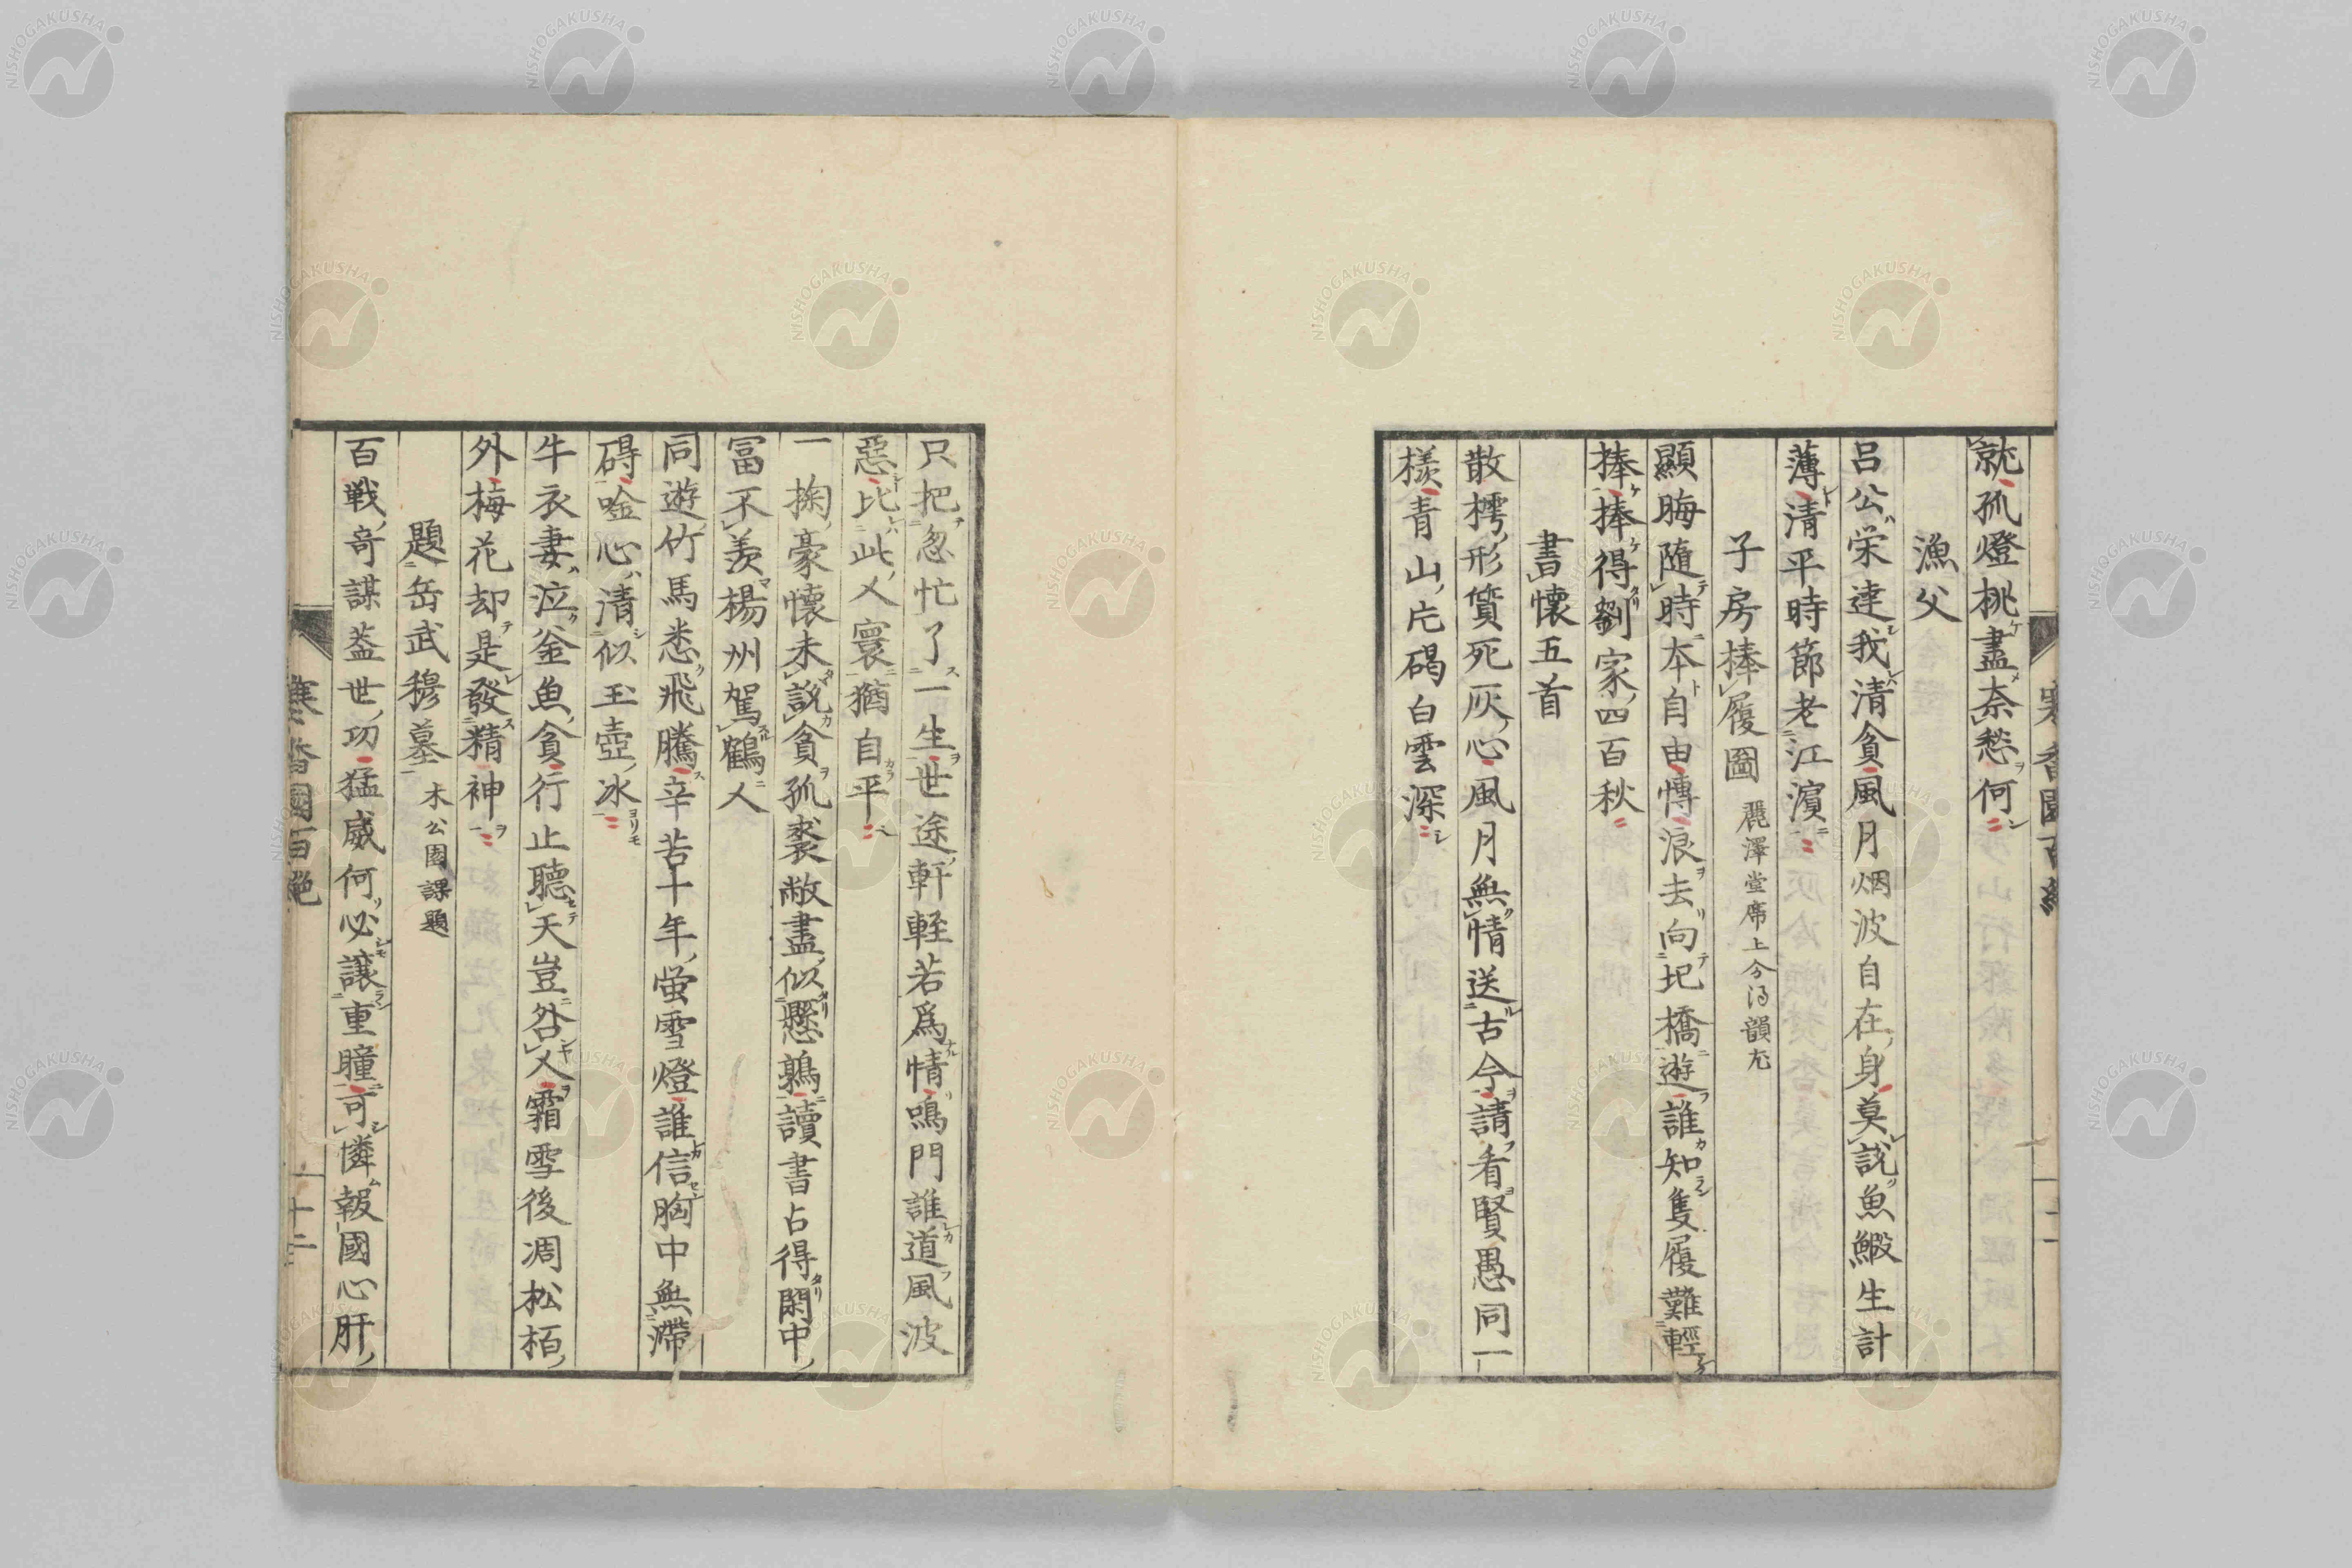 就孤燈挑盡奈愁何
漁父
呂公栄達我清貧風月烟波自在身莫説魚鰕生計
薄清平時節老江濵
子房捧履圖 麗澤堂席上分得韻尤
顯晦隨時本自由慱浪去向圯橋遊誰知隻履難輕
捧捧得劉家四百秋
書懷五首
散樗形質死灰心風月無情送古今請看賢愚同一
様青山片碣白雲深
只把忩忙了一生世途軒輊若爲情鳴門誰道風波
惡比此人寰猶自平
一掬豪懷未説貧孤裘敝盡似懸鶉讀書占得閑中
冨不羨楊州駕鶴人
同遊竹馬悉飛騰辛苦十年螢雪燈誰信胸中無滯
碍唫心清似玉壺冰
牛衣妻泣釜魚貧行止聽天豈咎人霜雪後凋松栢
外梅花却是發精神
題岳武穆墓 木公園課題
百戦奇謀葢世功猛威何必讓重瞳可憐報國心肝
寒香園百絶
十二
NISHOGAKUSHA